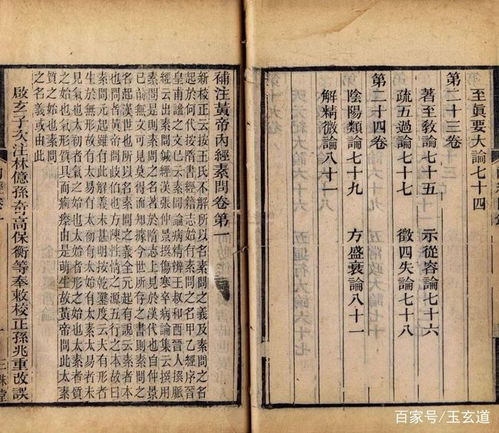 至眞要大論七十四
第二十三卷
著至敎論七十五 示從容論七十六
疏五過論七十七 徵四失論七十八
第二十四卷
陰陽類論七十九 方盛衰論八十一
解精微論八十一
補注黃帝內經素問卷第一
新校正按王氏不解所以名素問之義及素問之名
起於何代按隋書經籍志始有素問之名甲乙經序晉
皇甫謐之文已云素問論病精辨王叔和西晉人撰脈
經云出素問鍼經漢張仲景撰傷寒卒病論集云撰用
素問是則素問之名著於隋志上見於漢代也自仲景
已前無文可見莫得而知據今世所存之書則素問之
名起漢世也所以名素問之義全元起有說云素者本
也問者黃帝問岐伯也方陳性情之源五行之本故曰
素問元起雖有此解義未甚明按乾鑿度云夫有形者
生於無形故有太易有太初有太始有太素太易者未
見氣也太初者氣之始也太始者形之始也太素者質
之始也氣形質具而痾瘵由是萌生故黃帝問此太素
之名義或由此
啟玄子次注林億孫奇高保衡等奉敕校正孫兆重改誤
百家号/玉玄道